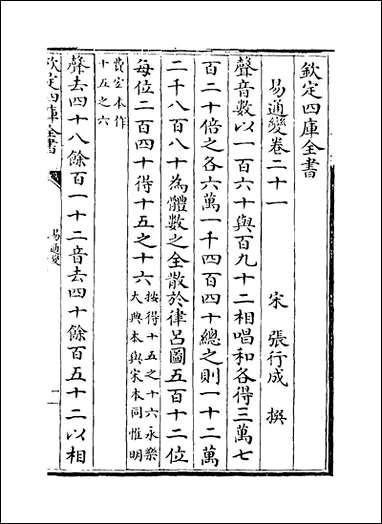 欽定四庫全書
易通變卷二十一
宋 張行成 撰
聲音數以一百六十與百九十二相唱和各得三萬七
百二十倍之各六萬一千四百四十總之則一十二萬
二千八百八十為體數之全散於律呂圖五百十二位
每位二百四十得十五之十六
按得十五之十六永樂
大典本與宋本同惟明
費宏本作
十五之六
聲去四十八餘百一十二音去四十餘百五十二以相
欽定四庫全書
易通變
一